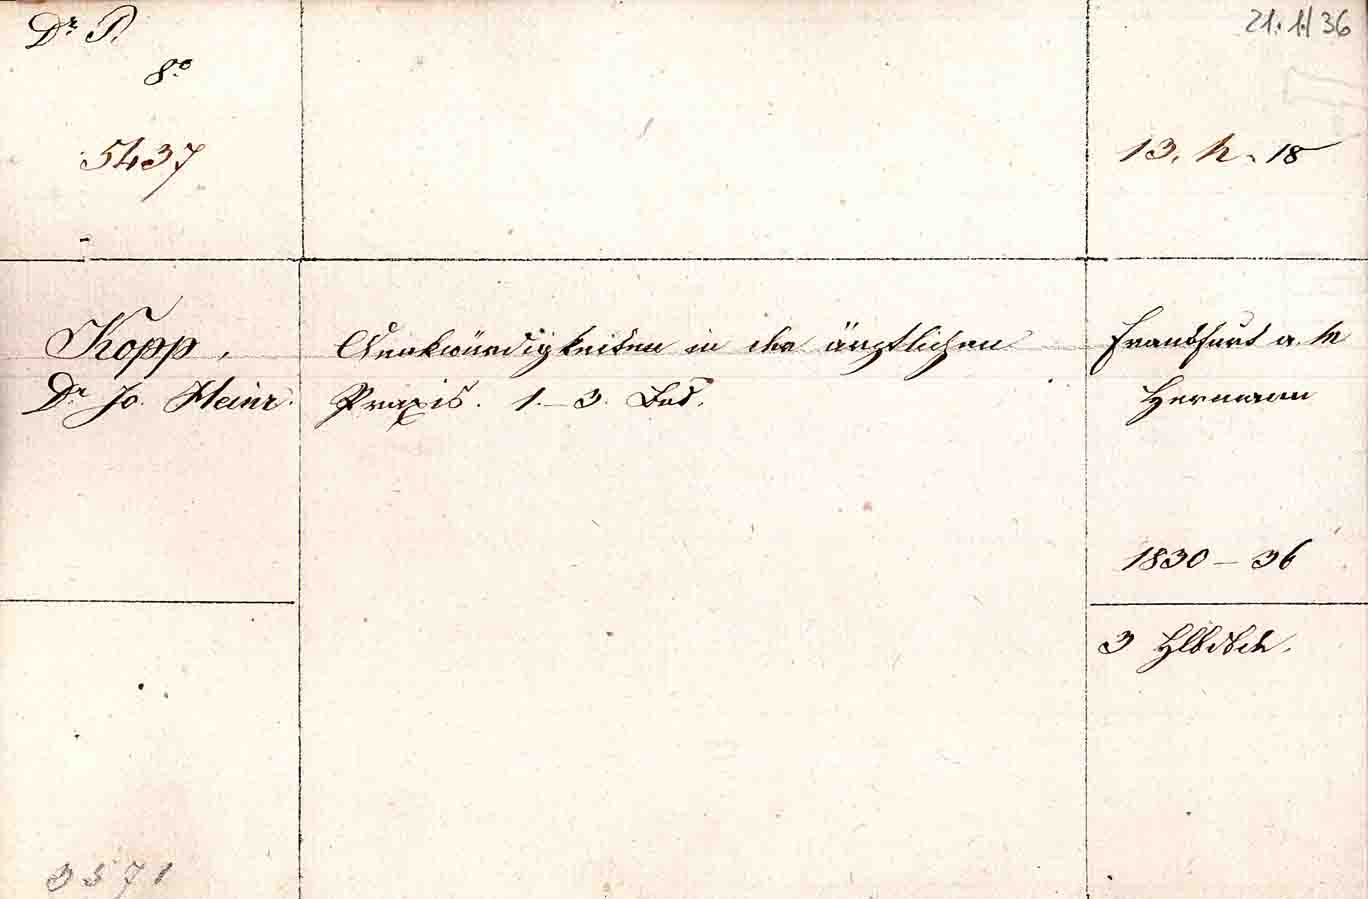 Dr P.
8o
5437
21.1.36
13. h. 18
Kopp,
Dr Jo. Heinr.
Denkwürdigkeiten in der ärztlichen
Praxis. 1.–3. Bd.
Frankfurt a. M
Hermann
1830–36
3 Hlbdbch.
3571